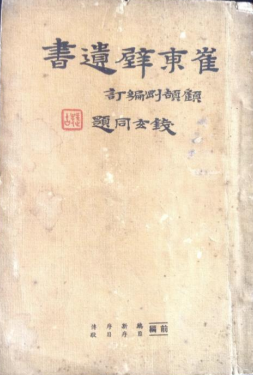 崔東壁遺書
顧頡剛編訂
錢玄同題
前編